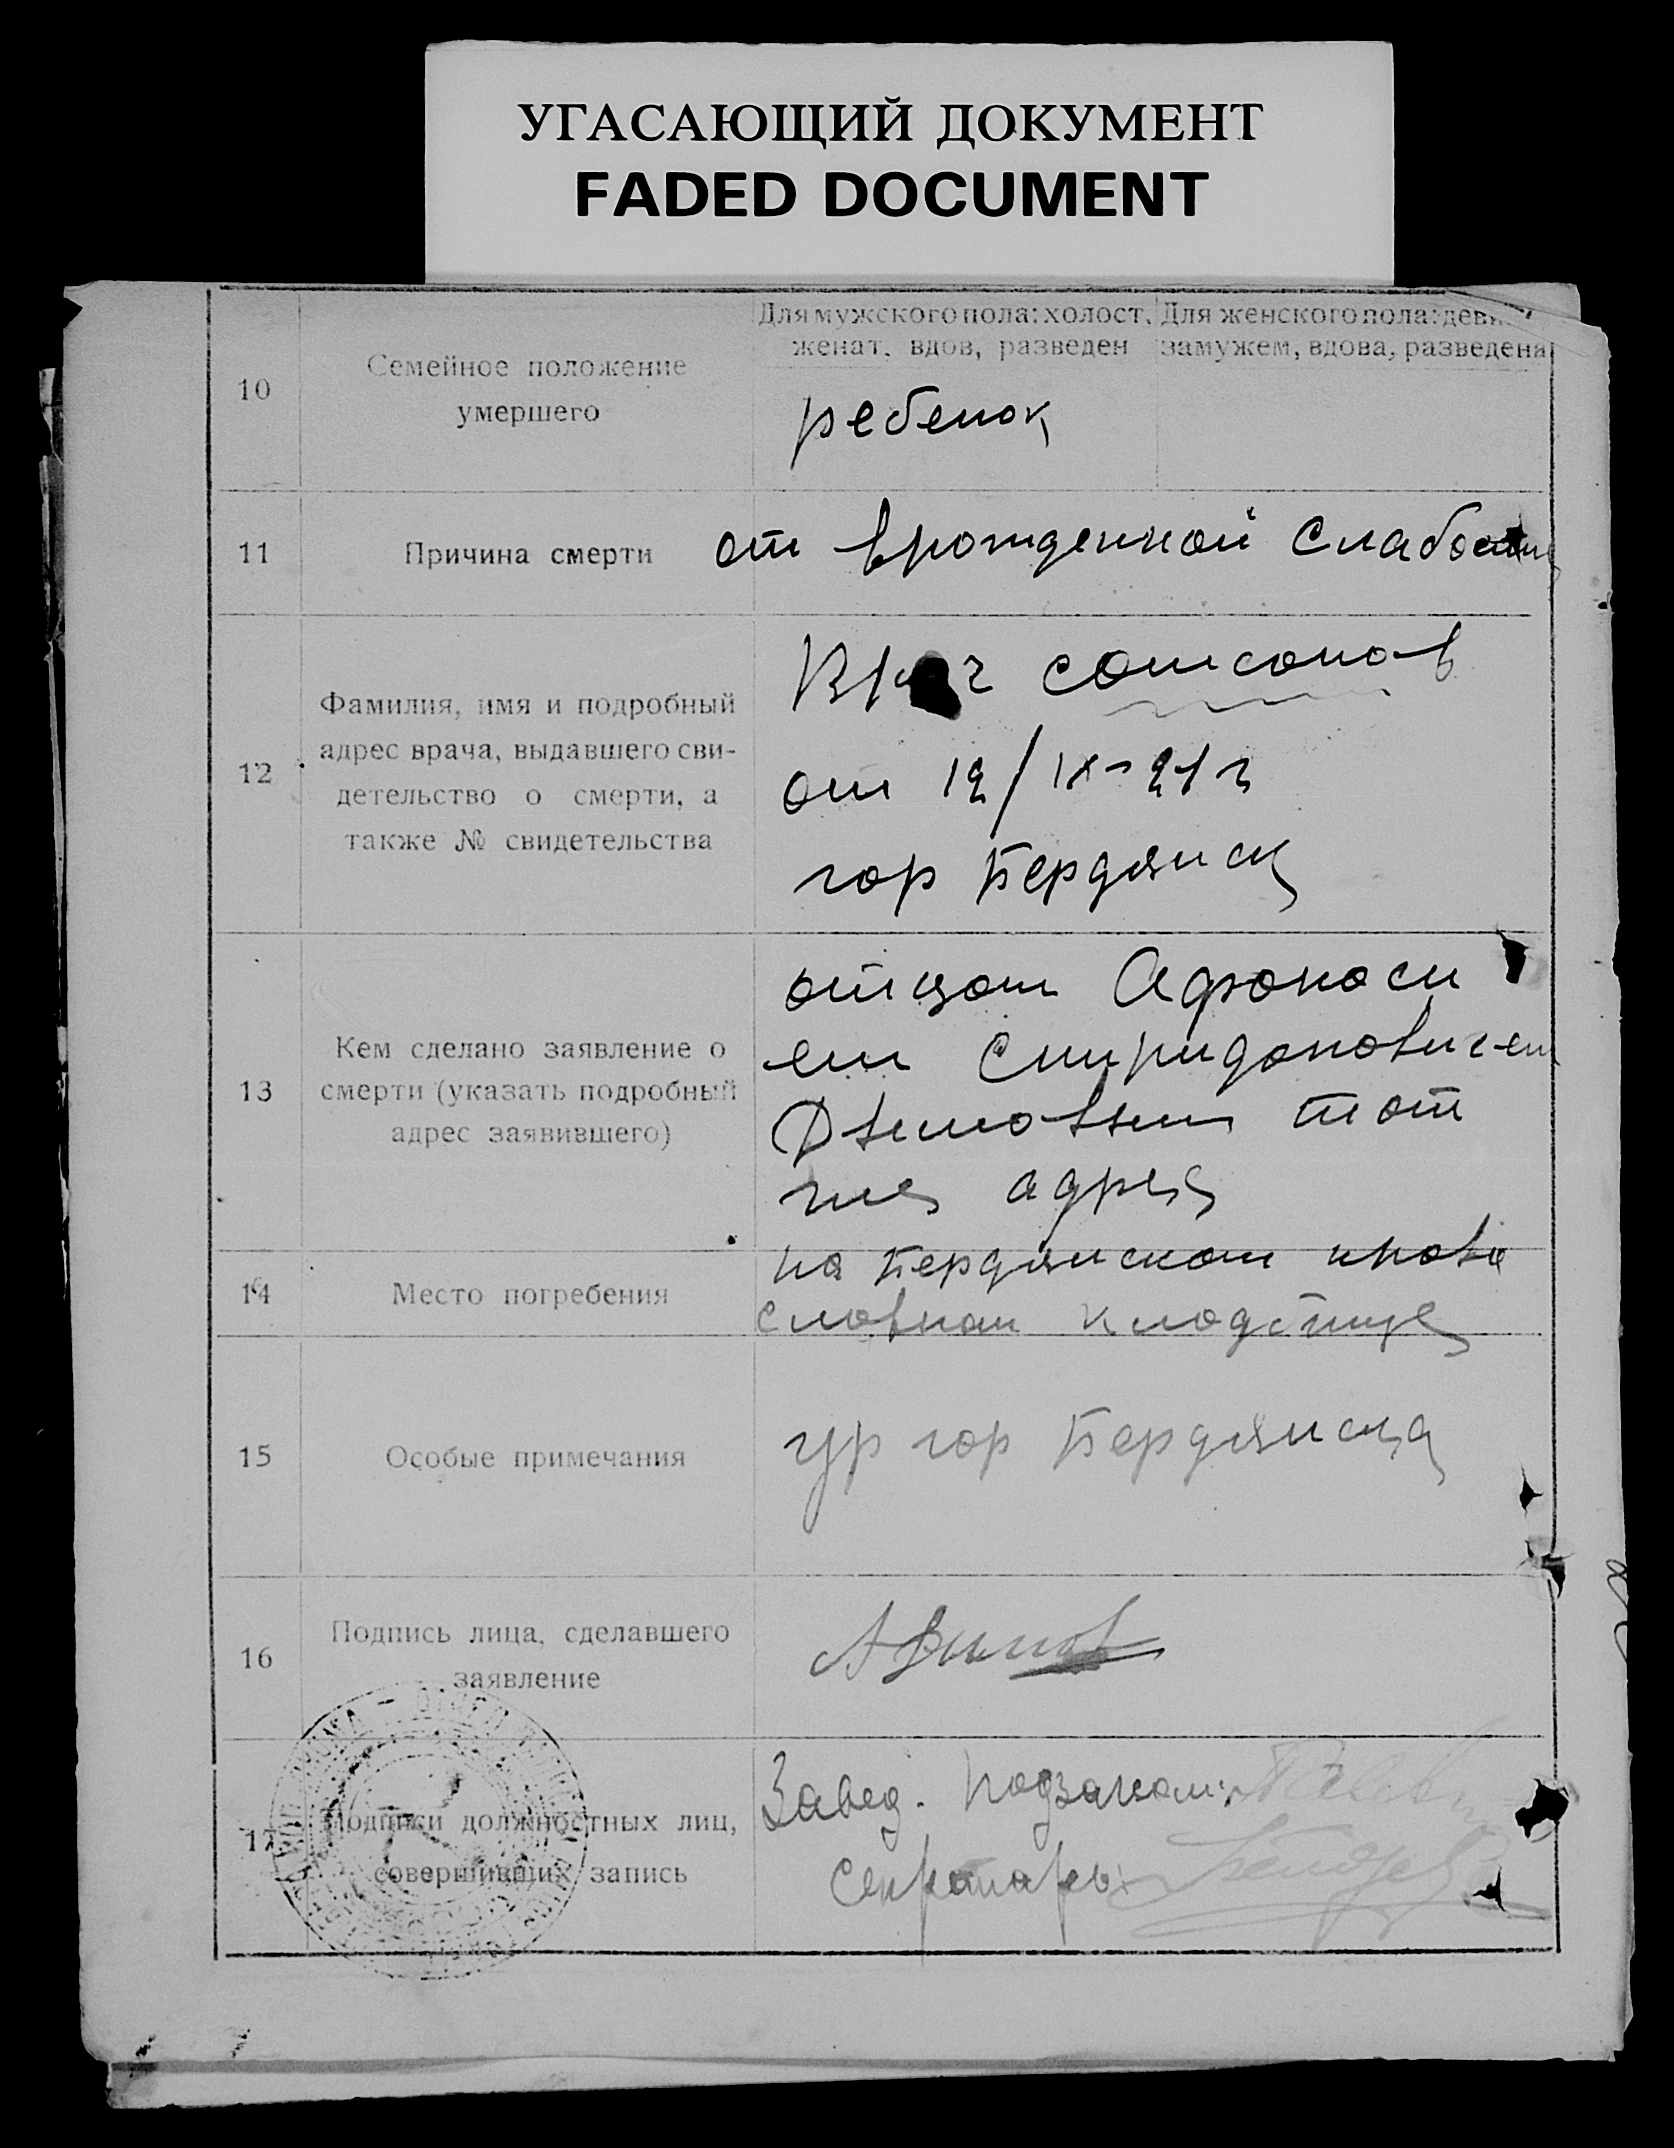 УГАСАЮЩИЙ ДОКУМЕНТ
FADED DOCUMENT
10
Семейное положение
умершего
Для мужского пола: холост,
женат, вдов, разведен
Для женского пола:
замужем, вдова, разведена
ребенок
11
Причина смерти
от врожденной слабости
12
Фамилия, имя и подробный
адрес врача, выдавшего сви-
детельство о смерти, а
также № свидетельства
Врач
от 12/IX-21 г
гор Бердянск
13
Кем сделано заявление о
смерти (указать подробный
адрес заявившего)
отцом Афонаси
ем Спиридоновичем
тот
же адрес
14
Место погребения
на Бердянском право
славном кладбище
15
Особые примечания
ур гор Бердянска
16
Подпись лица, сделавшего
заявление
17
Подписи должностных лиц,
совершивших запись
Завед. Подзагсом:
Секретарь: